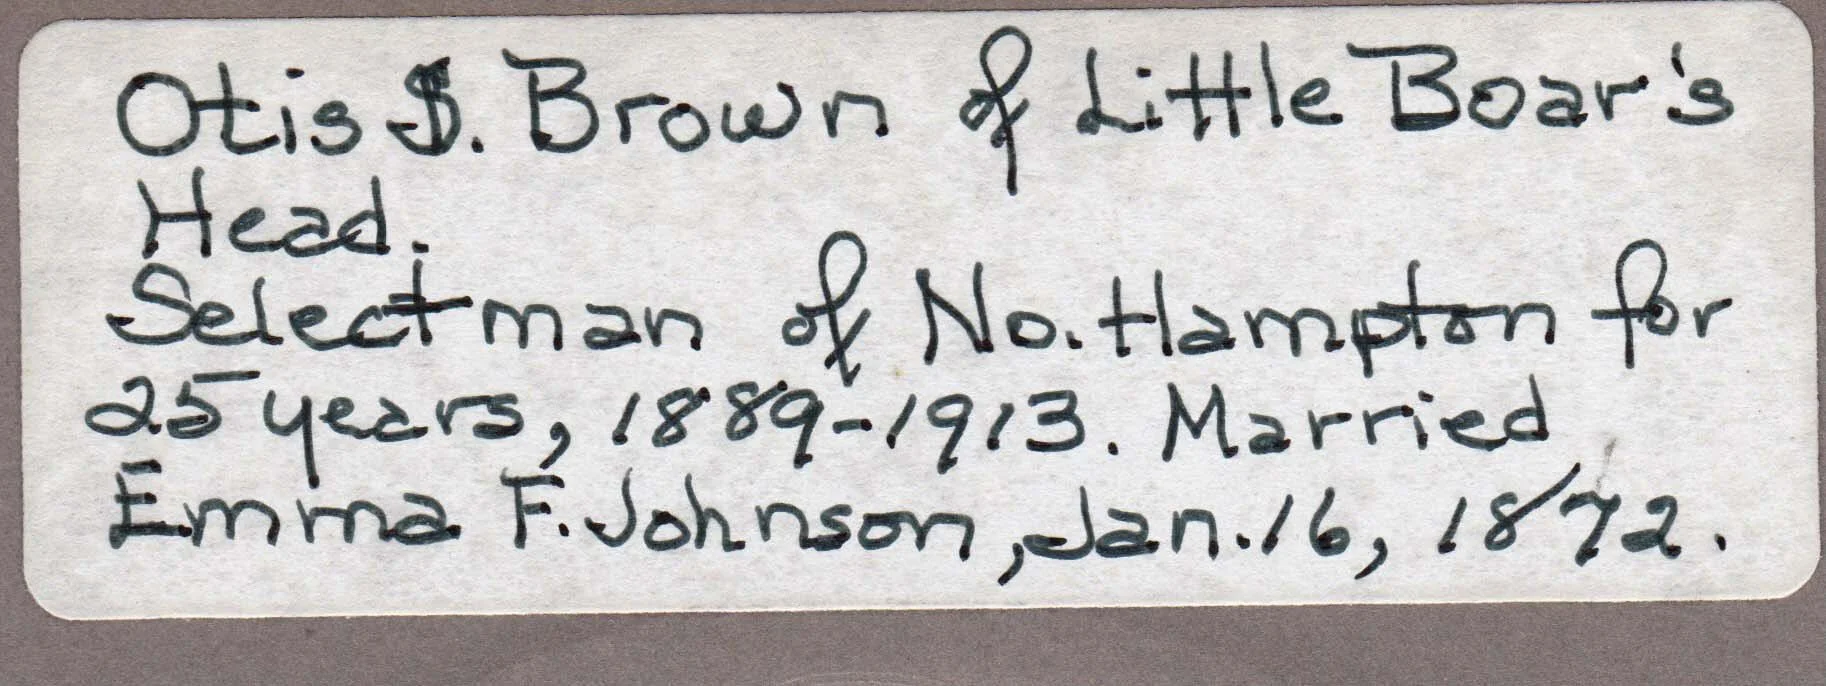 Otis S. Brown of Little Boar's
Head.
Selectman of No. Hampton for
25 years, 1889-1913. Married
Emma F. Johnson, Jan. 16, 1872.